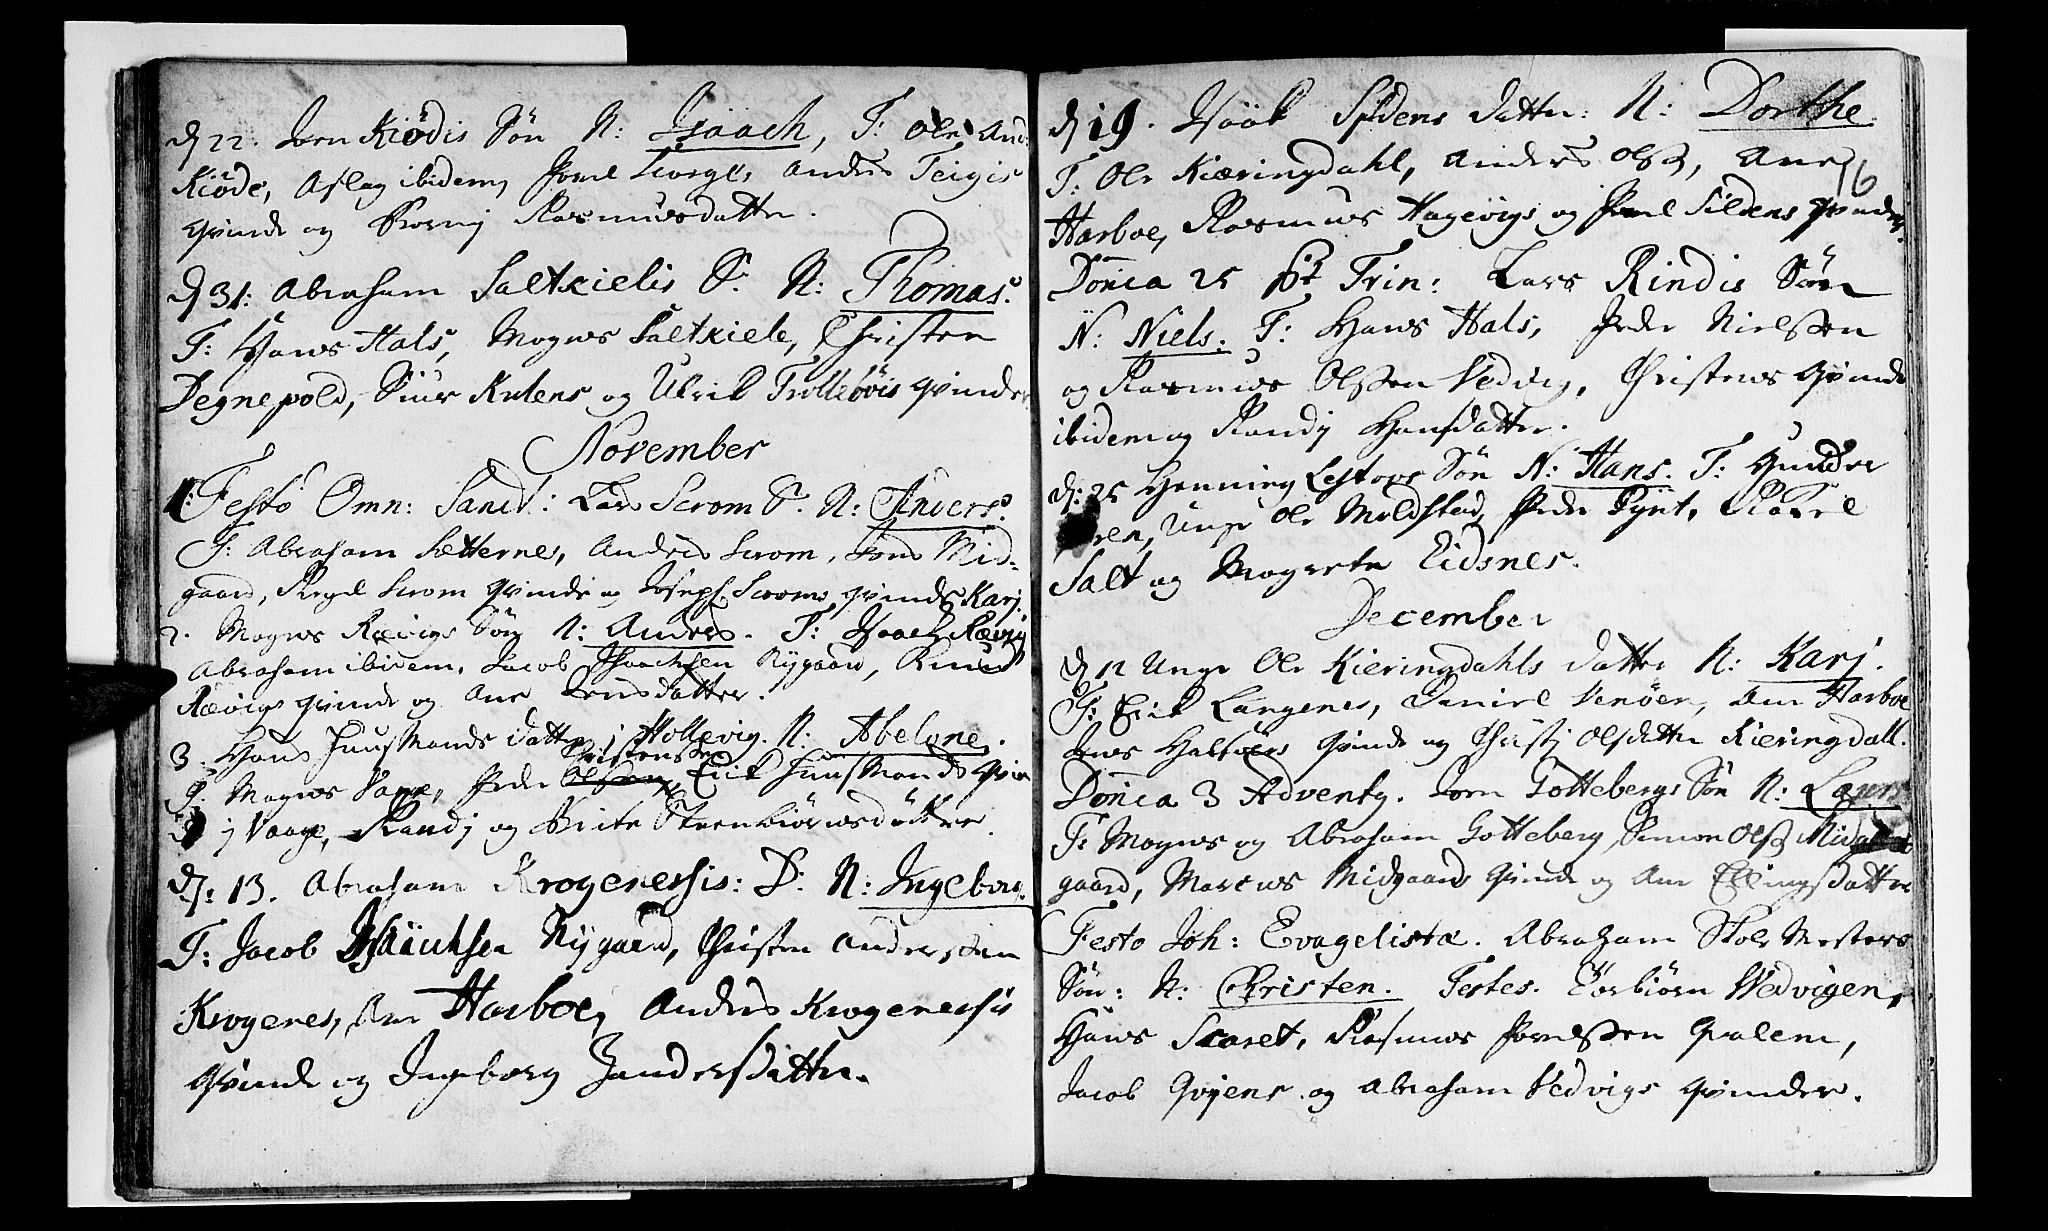 d 22. Jørn Kiødis Søn N: Isaach, T: Ole And:
Kiøde, Aslag ibidem, Poul Scorge, Anders Teigis
qvinde og Borni Rasmusdatter.
d 31: Abraham Saltkielis S. N: Thomas.
T: Hans Hals, Mogns Saltkiele, Christen
Degnepold, Siur Kulens og Ulrik Trollebøis qvinder
November
1: Festo Omn: Sanct: Lars Scrom S. N: Anders.
T: Abraham Sætternes, Anders Scrom, Jons Mid-
gaard, Scrom qvinde og Joseph Scroms qvinde Karj.
2. Mogns Rævigs Søn N: Anders. T: Isaach Rævig
Abraham ibidem, Jacob Isaachsen Nygaard, Knud
Rævigs qvinde og Ane Jensdatter.
3. Hans Huusmands datter j Hollevig. N: Abelone.
Christensen
T. Mogns Vaage, Peder Olsen, Erik Huusmands qvin
de j Vaage, Randj og Brite Steenbiørnsdøttre.
d: 13. Abraham Krogenessis: D: N: Ingeborg.
T: Jacob Isaachsen Nygaard, Christen Anderssen
Krogenes, Ane Harboe, Anders Krogenessis
qvinde og Ingeborg Zandersdatter.
d 19. Isaak Sildens datter: N: Dorthe.
16
T: Ole Kiæringdahl, Anders Olss, Ane
Harboe, Rasmus Hagevigs og Poul Sildens qvinder.
Donica 25 pt Trin: Lars Rindis Søn
N: Niels. T: Hans Hals, Peder Nielssen
og Rasmus Olssen Vedvig, Christens qvinde
ibidem og Randj Hansdatter.
d: 25 Henning Søn N: Hans. T: Gunder
Unge Ole Moldstad, Peder Pynt,
Salt og Magrete Eidsnes.
December
d 12 Unge Ole Kieringdahls datter N: Karj.
T: Erik Langenes, Daniel Venøen, Ane Harboe
Jens Halsørs qvinde og Christj Olsdatter Kieringdall.
Donica 3 Adventg. Jørn Gottebergs Søn N:
T: Mogns og Abraham Gotteberg, Simon Olss Mid
gaard, Marcus Midgaards qvinde og Ane Ellingsdatter
Festo Joh: Evagelistæ. Abraham Stole Mesters
Søn: N: Christen. Testes. Torbiørn Vedvigen,
Hans Scaret, Rasmus Povelssen Qvalem,
Jacob Qvijens og Abraham Vedvigs qvinder.